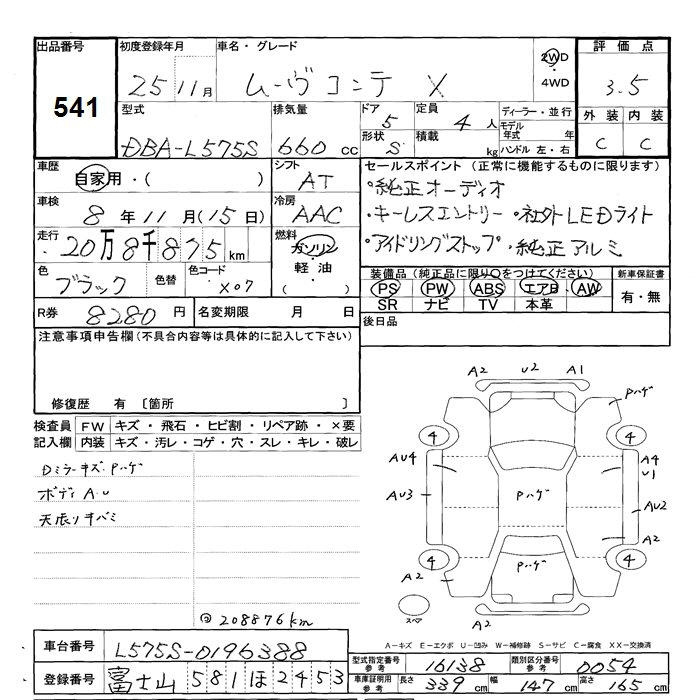 出品番号 初度登録年月 車名・グレード 評価点
541 25 11月 ムーヴコンテ X 2WD ・ 4WD 3.5
型式 排気量 ドア 5 定員 4人 ディーラー・並行 外装 内装
DBA-L575S 660cc 形状 S 積載 kg モデル年式 年 ハンドル 左・右 C C
車歴 自家用・( ) シフト AT セールスポイント (正常に機能するものに限ります)
車検 8年11月(15日) 冷房 AAC ・純正オーディオ
走行 20万8千875km 燃料 ガソリン・軽油・( ) ・キーレスエントリー ・社外LEDライト
・アイドリングストップ ・純正アルミ
色 ブラック 色替 色コード X07 装備品 (純正品に限り○をつけてください) 新車保証書
PS PW ABS エアB AW 有・無
SR ナビ TV 本革
R券 8280円 名変期限 月 日 後日品
注意事項申告欄(不具合内容等は具体的に記入して下さい)
修復歴 有 〔箇所 〕
検査員 FW キズ・飛石・ヒビ割・リペア跡・×要
記入欄 内装 キズ・汚レ・コゲ・穴・スレ・キレ・破レ
Dミラーキズ Pハゲ
ボディ A.U
天張リキバミ
208876km
A2 U2 A1 Pハゲ
4 4
AU4 A4
U1
AU3 Pハゲ AU2
A2
4 Pハゲ 4
A2
スペア A2
A-キズ E-エクボ U-凹み W-補修跡 S-サビ C-腐食 XX-交換済
車台番号 L575S-0196388 型式指定番号 参考 16138 類別区分番号 参考 0054
登録番号 富士山 581 ほ 2453 車庫証明用 参考 長さ 339cm 幅 147cm 高さ 165cm